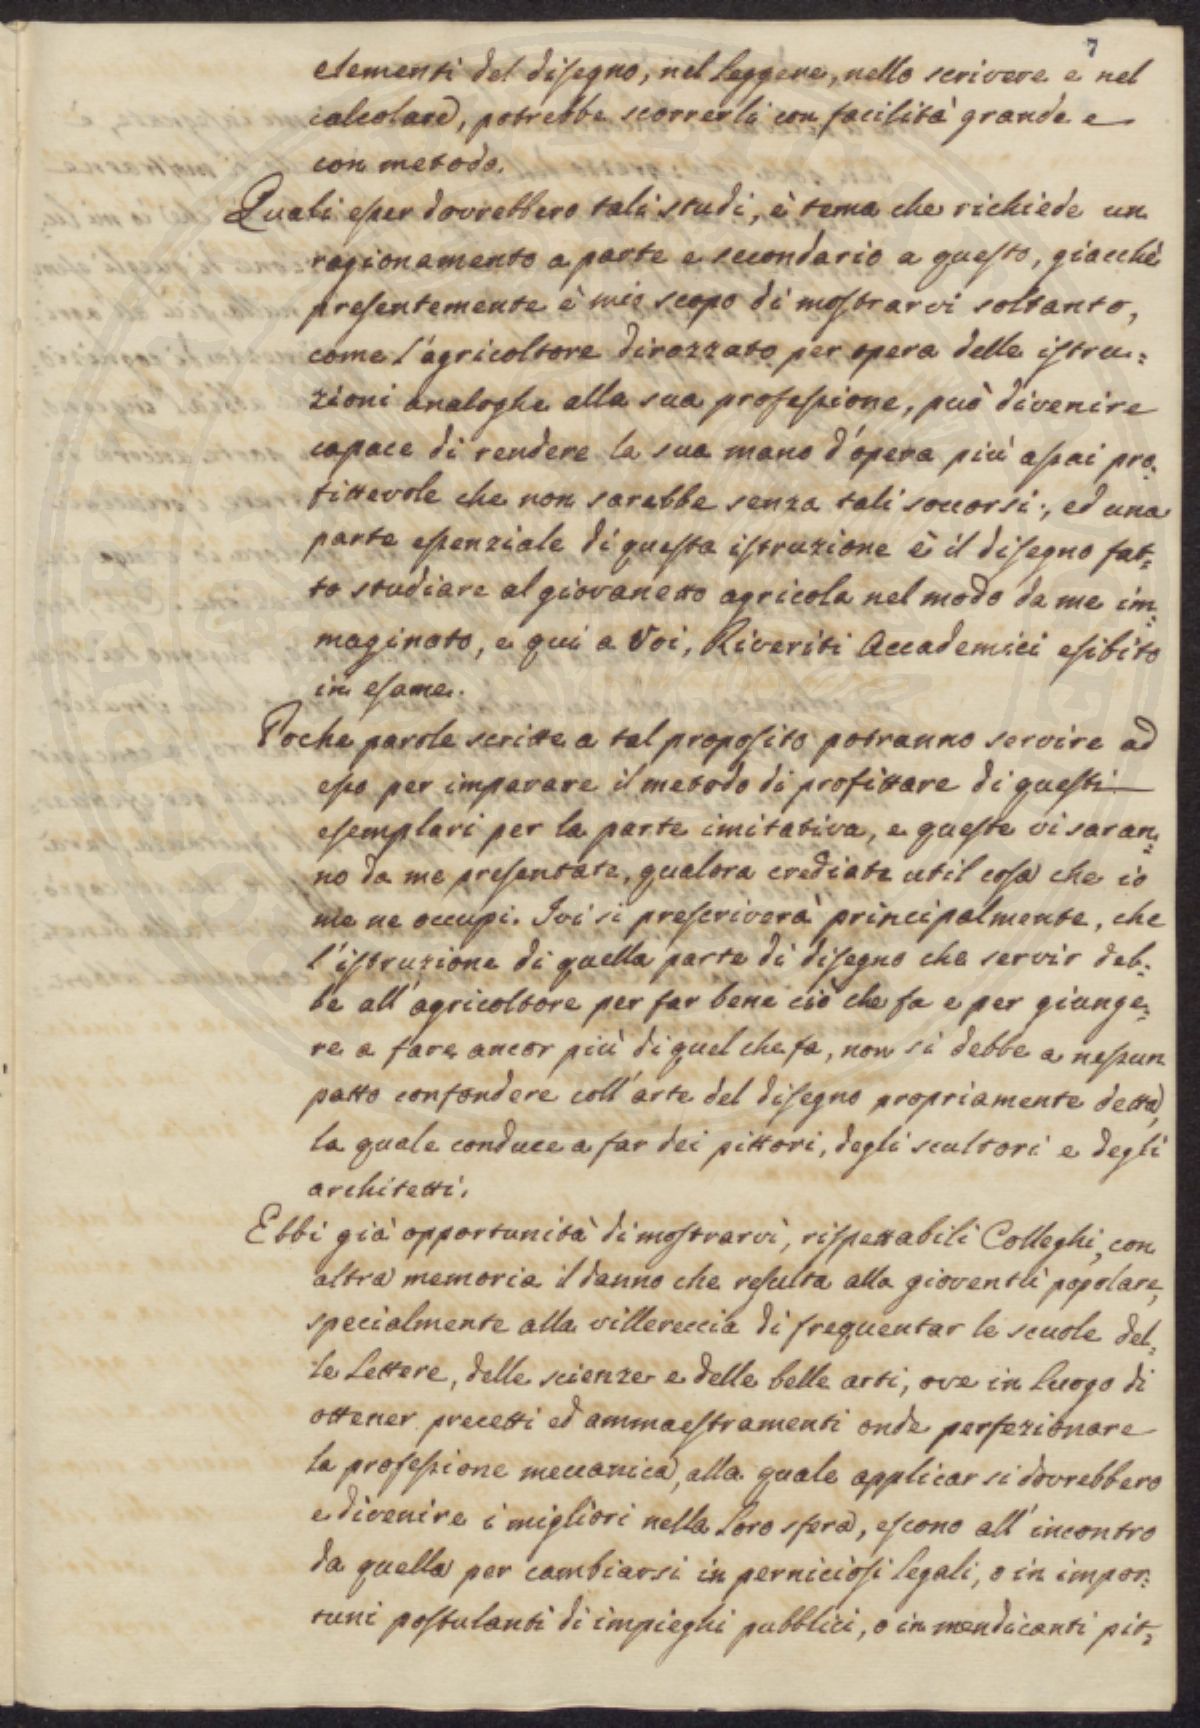 7
elementi del disegno, nel leggere, nello scrivere e nel
calcolare, potrebbe scorrerli con facilità grande e
con metodo.
Quali esser dovrebbero tali studi, è tema che richiede un
ragionamento a parte e secondario a questo, giacchè
presentemente è mio scopo di mostrarvi soltanto,
come l'agricoltore dirozzato per opera delle istru=
zioni analoghe alla sua professione, può divenire
capace di rendere la sua mano d'opera più assai pro=
fittevole che non sarebbe senza tali soccorsi; ed una
parte essenziale di questa istruzione è il disegno fat=
to studiare al giovanetto agricola nel modo da me im=
maginato, e qui a Voi, Riveriti Accademici esibito
in esame.
Poche parole scritte a tal proposito potranno servire ad
esso per imparare il metodo di profittare di questi
esemplari per la parte imitativa, e queste vi saran=
no da me presentate, qualora crediate util cosa che io
me ne occupi. Ivi si prescriverà principalmente, che
l'istruzione di quella parte di disegno che servir deb=
be all'agricoltore per far bene ciò che fa e per giunge=
re a fare ancor più di quel che fa, non si debbe a nessun
patto confondere coll'arte del disegno propriamente detta,
la quale conduce a far dei pittori, degli scultori e degli
architetti.
Ebbi già opportunità di mostrarvi, rispettabili Colleghi, con
altra memoria il danno che resulta alla gioventù popolare,
specialmente alla villereccia di frequentar le scuole del=
le Lettere, delle scienze e delle belle arti, ove in luogo di
ottener precetti ed ammaestramenti onde perfezionare
la professione meccanica, alla quale applicar si dovrebbero
e divenire i migliori nella loro sfera, escono all'incontro
da quella per cambiarsi in perniciosi legali, o in impor=
tuni postulanti di impieghi pubblici, o in mendicanti pit=